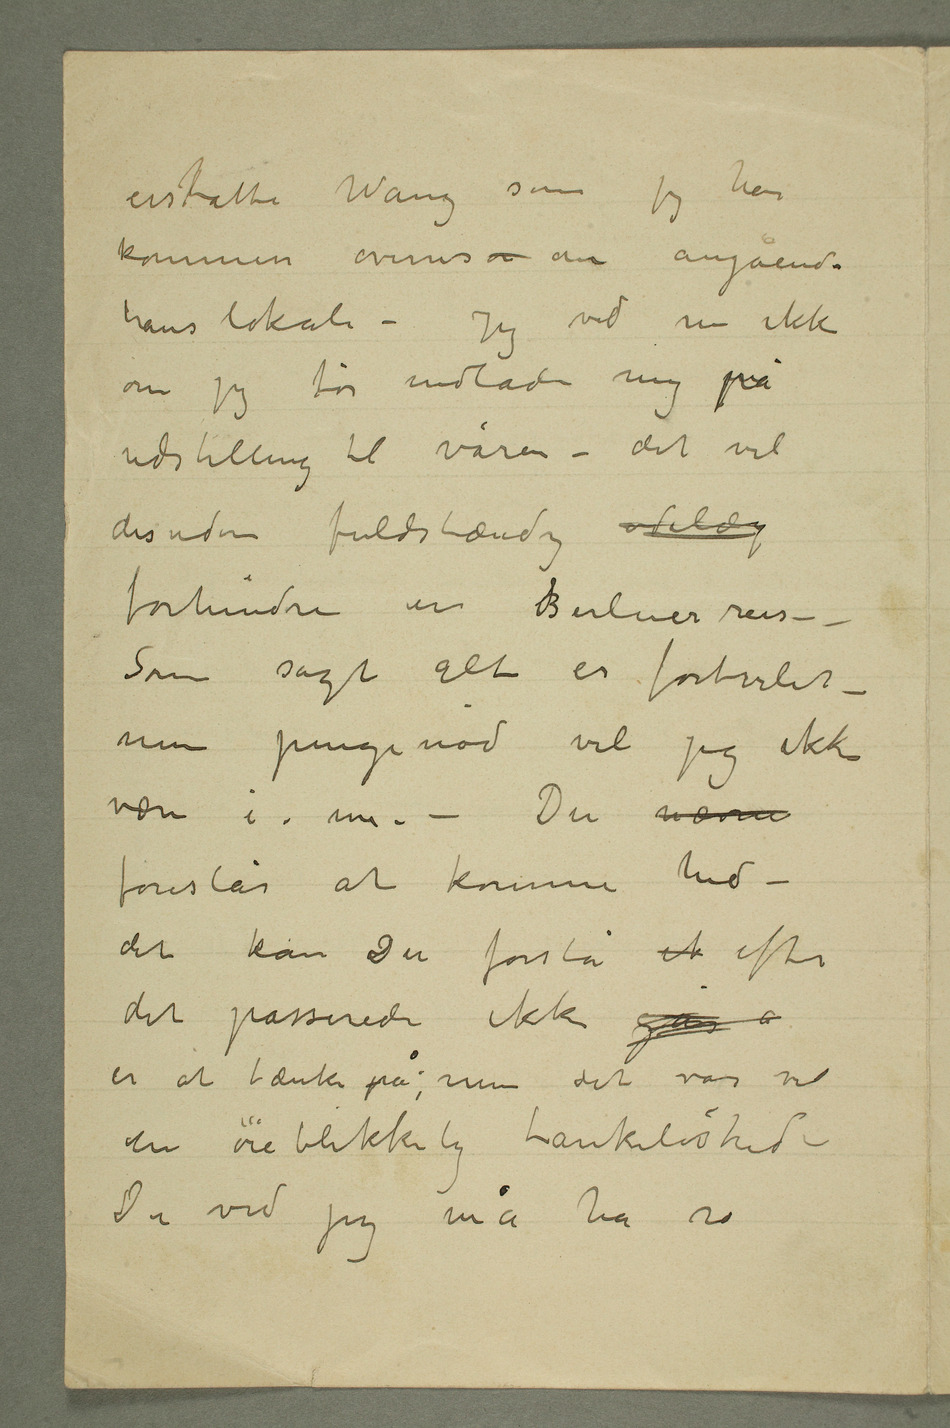 erstatte Wang som jeg har
kommen overens om angående
hans lokale – Jeg ved nu ikke
om jeg tør indlade mig på
udstilling til våren – det vil
desuden fuldstændig ødelæg
forhindre en Berlinerreis –
Som sagt alt er fortvilet –
men pengenød vil jeg ikke
være i. nu. – Du nævne
foreslår at komme hid –
det kan Du forstå at efter
det passerede ikke går a
er at tænke på; men det var vel
en øieblikkelig tankeløshed –
Du ved jeg må ha ro